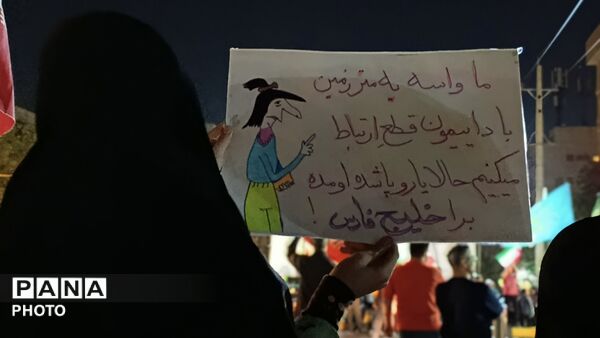 ما واسه یه متر زمین
با داییمون قطع ارتباط
میکنیم حالا یارو پاشده اومده
برا خلیج فارس !
PANA
PHOTO